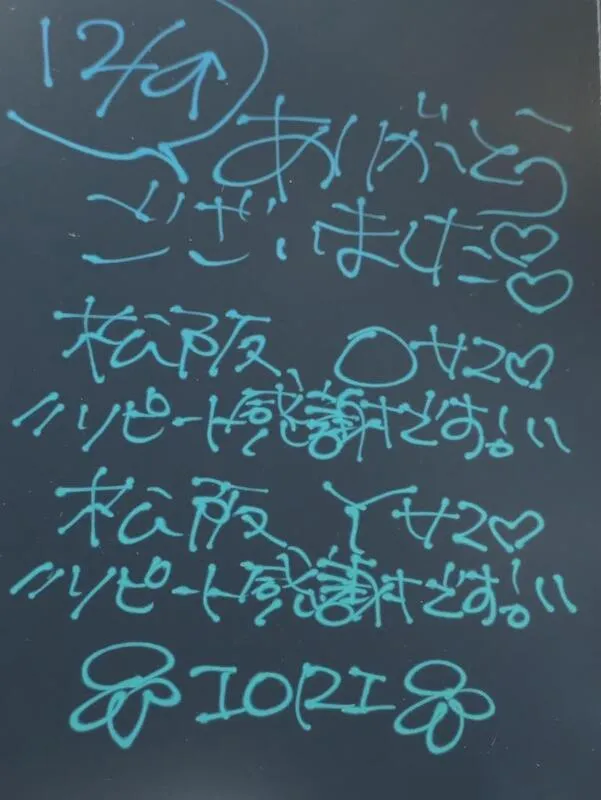 12/9
ありがとう
ございました♡♡
松阪 〇サマ♡
〃リピート感謝です。〃
松阪 Yサマ♡
〃リピート感謝です。〃
IORI